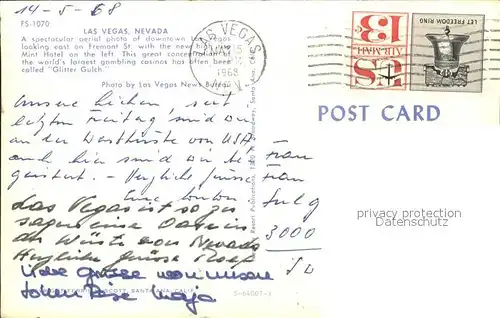 14-5-68
FS-1070
LAS VEGAS, NEVADA
A spectacular aerial photo of downtown Las Vegas
looking east on Fremont St. with the new high rise
Mint Hotel on the left. This great concentration of
the world's largest gambling casinos has often been
called "Glitter Gulch."
Photo by Las Vegas News Bureau
LAS VEGAS
1968
13c
US
AIR MAIL
LET FREEDOM RING
POST CARD
Unsere Lieben, seit
letzten Freitag sind wir
an der Westküste von USA
auch hier sind wir be-
geistert. - Herzliche Grüsse
Eure
Las Vegas ist so zu
sagen eine Oase in
der Wüste von Nevada
Herzliche Grüsse
Liebe Grüsse von unserer
tollen Reise
Frau
3000
privacy protection
watermark
S-64007-3